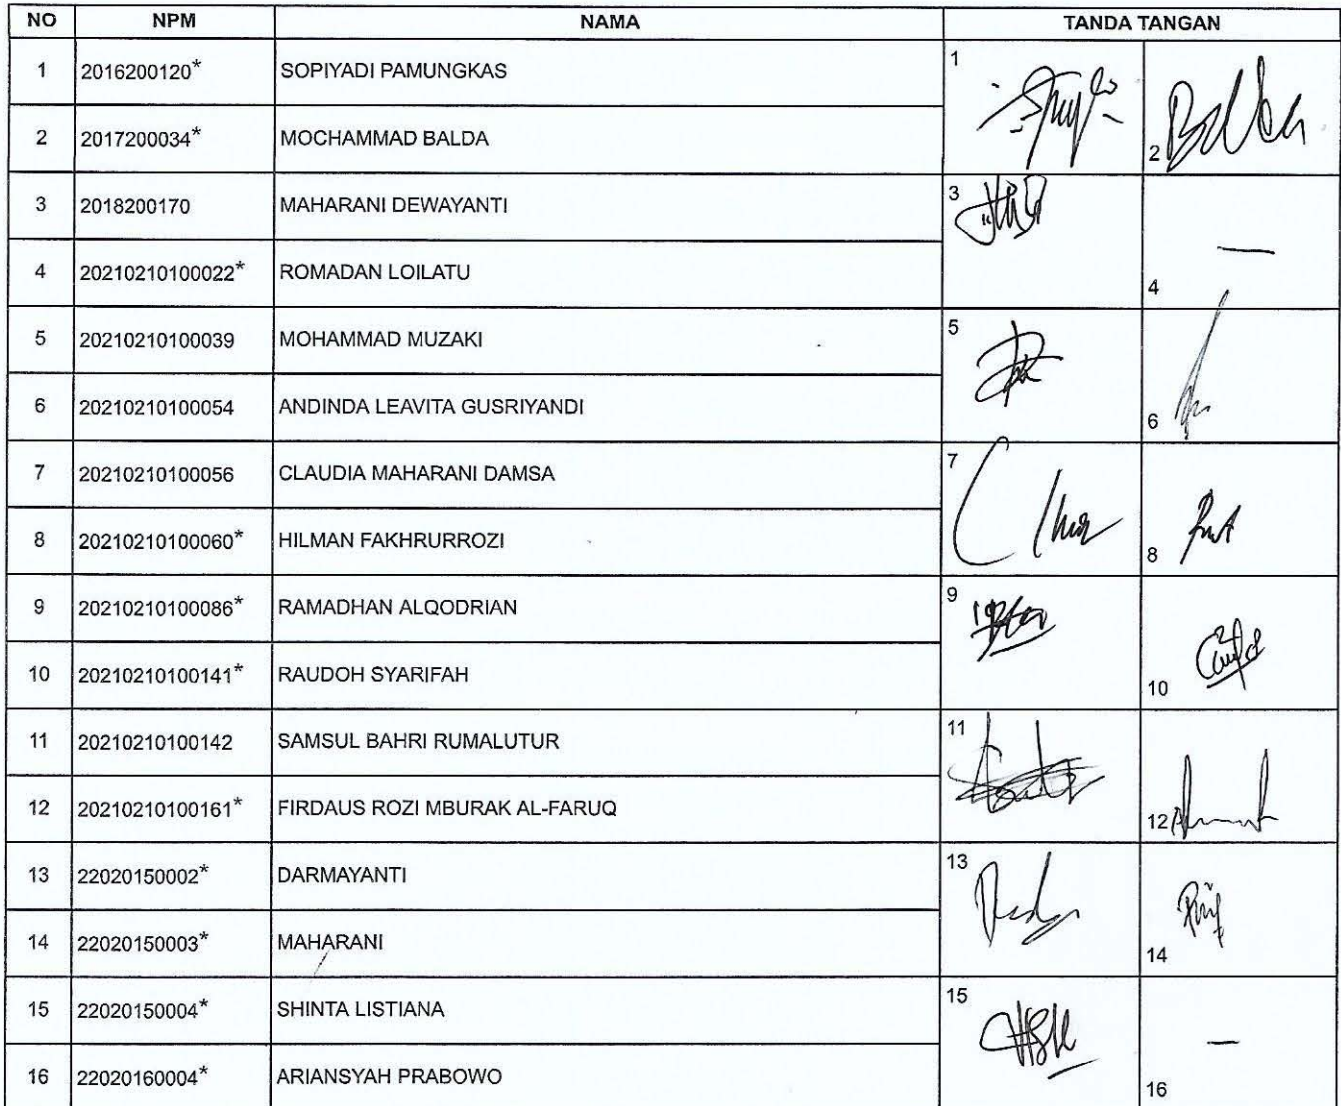 NO NPM NAMA TANDA TANGAN
1 2016200120* SOPIYADI PAMUNGKAS 1
2 2017200034* MOCHAMMAD BALDA 2
3 2018200170 MAHARANI DEWAYANTI 3
4 20210210100022* ROMADAN LOILATU 4 —
5 20210210100039 MOHAMMAD MUZAKI 5
6 20210210100054 ANDINDA LEAVITA GUSRIYANDI 6
7 20210210100056 CLAUDIA MAHARANI DAMSA 7
8 20210210100060* HILMAN FAKHRURROZI 8
9 20210210100086* RAMADHAN ALQODRIAN 9
10 20210210100141* RAUDOH SYARIFAH 10
11 20210210100142 SAMSUL BAHRI RUMALUTUR 11
12 20210210100161* FIRDAUS ROZI MBURAK AL-FARUQ 12
13 22020150002* DARMAYANTI 13
14 22020150003* MAHARANI 14
15 22020150004* SHINTA LISTIANA 15
16 22020160004* ARIANSYAH PRABOWO 16 —